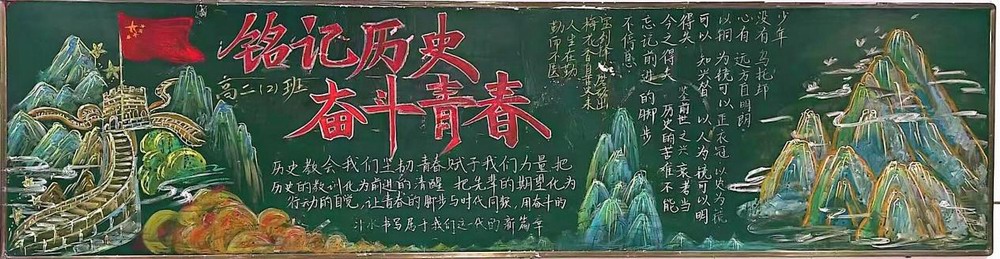 铭记历史
奋斗青春
高二(2)班
历史教会我们坚韧青春赋予我们力量把
历史的教训化为前进的清醒 把先辈的期望化为
行动的自觉,让青春的脚步与时代同频,用奋斗的
汗水书写属于我们这一代的新篇章
少年
没有 乌托邦
心有 远方自明朗
以铜 为镜可以 正衣冠 以史为镜
可以 知兴替 以人为镜可以明
得失
今之得失 前世之兴衰者当
忘记前进 历史的苦难不能
不停息 的脚步
宝剑锋 出
梅花香自 寒来
人生在勤
勤